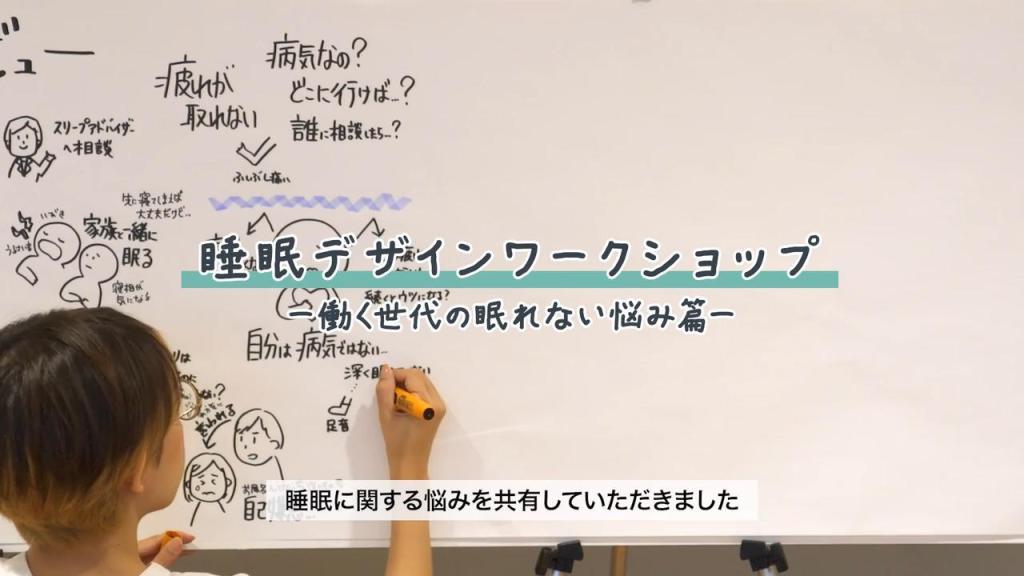 ビュー
疲れが
取れない
病気なの?
どこに行けば…?
誰に相談したら…?
スリープアドバイザー
へ相談
ふしぶし痛い
先に寝てしまえば
大丈夫だけど…
いびき
うるさい
家族と一緒に
眠る
寝相が
気になる
睡眠デザインワークショップ
ー働く世代の眠れない悩み篇ー
自分は病気ではない…
深く眠
足音
言われる
睡眠に関する悩みを共有していただきました